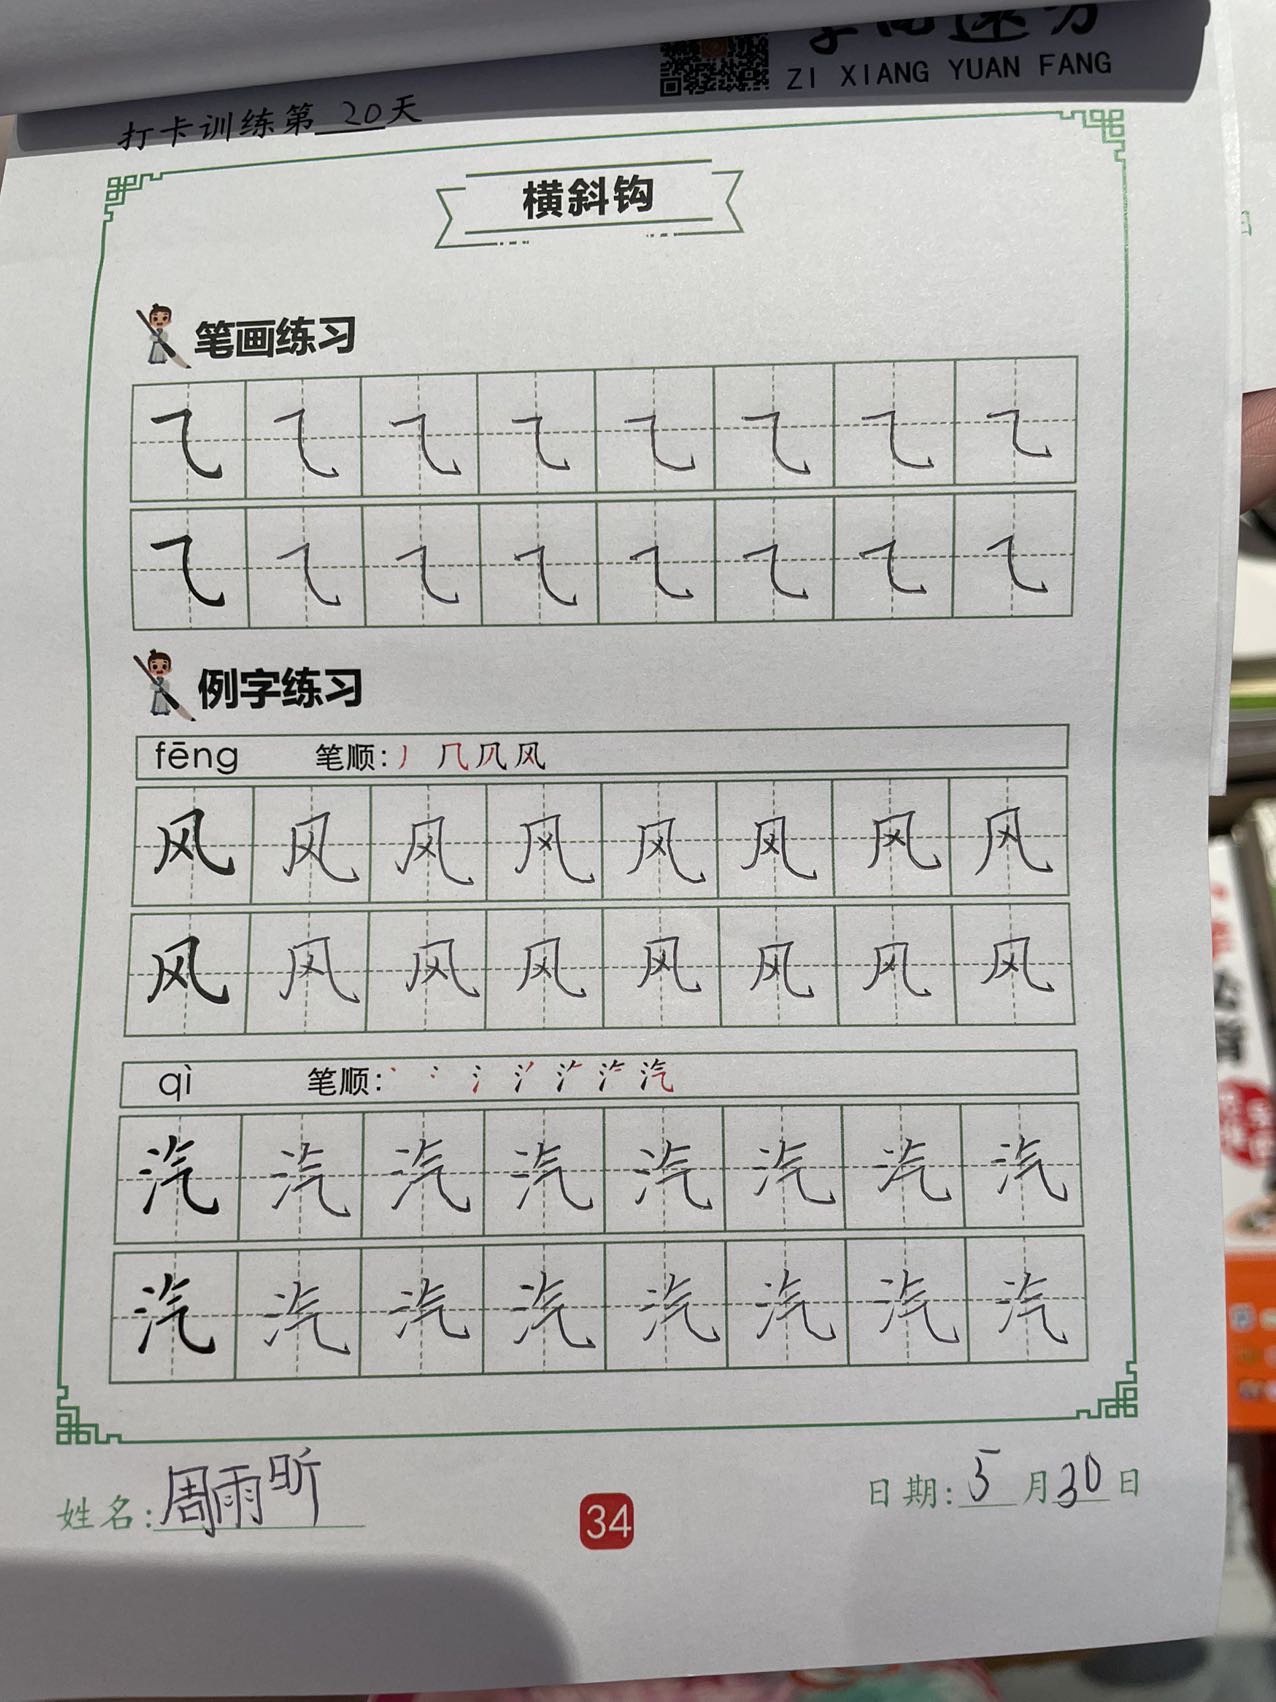 ZI XIANG YUAN FANG
打卡训练第 20 天
横斜钩
笔画练习
㇈ ㇈ ㇈ ㇈ ㇈ ㇈ ㇈ ㇈
㇈ ㇈ ㇈ ㇈ ㇈ ㇈ ㇈ ㇈
例字练习
fēng 笔顺: 丿 几 凤 风
风 风 风 风 风 风 风 风
风 风 风 风 风 风 风 风
qì 笔顺: 汽
汽 汽 汽 汽 汽 汽 汽 汽
汽 汽 汽 汽 汽 汽 汽 汽
姓名: 周雨昕
34
日期: 5 月 30 日